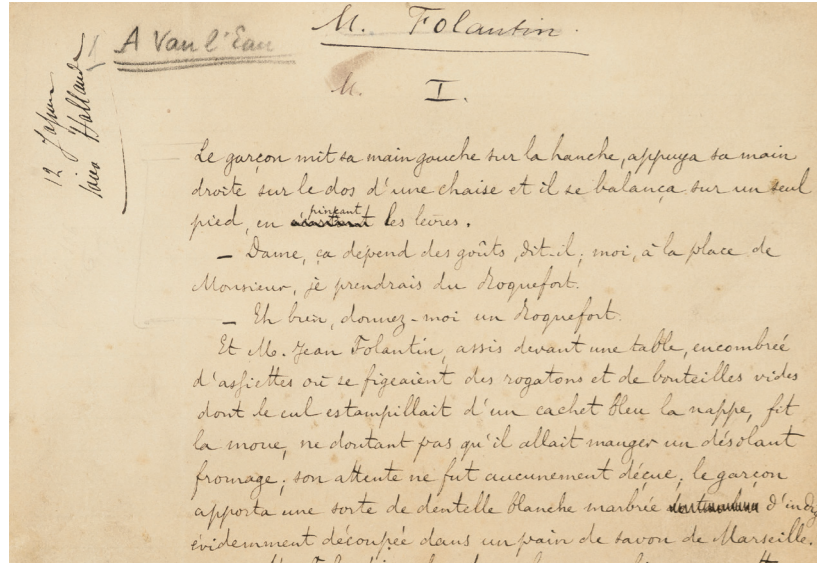 M. Folantin.
A Vau l'Eau
12 Japon
M. I.
Le garçon mit sa main gauche sur la hanche, appuya sa main
droite sur le dos d'une chaise et il se balança sur un seul
pied, en pinçant les lèvres.
— Dame, ça dépend des goûts, dit-il; moi, à la place de
Monsieur, je prendrais du Roquefort.
— Eh bien, donnez-moi un Roquefort.
Et M. Jean Folantin, assis devant une table, encombrée
d'assiettes où se figeaient des rogatons et de bouteilles vides
dont le cul estampillait d'un cachet bleu la nappe, fit
la moue, ne doutant pas qu'il allait manger un désolant
fromage; son attente ne fut aucunement déçue; le garçon
apporta une sorte de dentelle blanche marbrée d'indigo
évidemment découpée dans un pain de savon de Marseille.